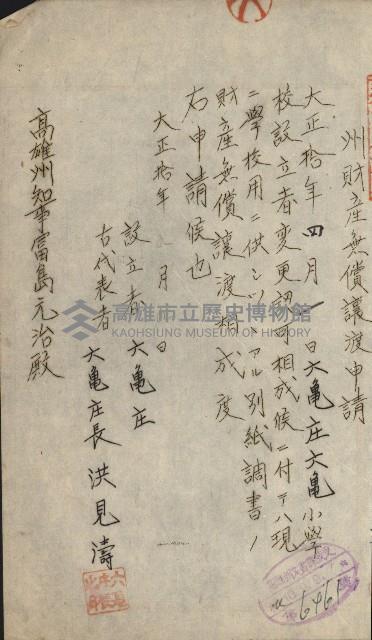 州財産無償讓渡申請
大正拾年四月一日大亀庄大亀小學
校設立者変更認可相成候ニ付テハ現
ニ學校用ニ供シツヽアル別紙調書ノ
財産無償讓渡相成度
右申請候也
大正拾年 月 日
設立者 大亀庄
右代表者 大亀庄長 洪見濤
高雄州知事富島元治殿
高雄市立歷史博物館
KAOHSIUNG MUSEUM OF HISTORY
6461